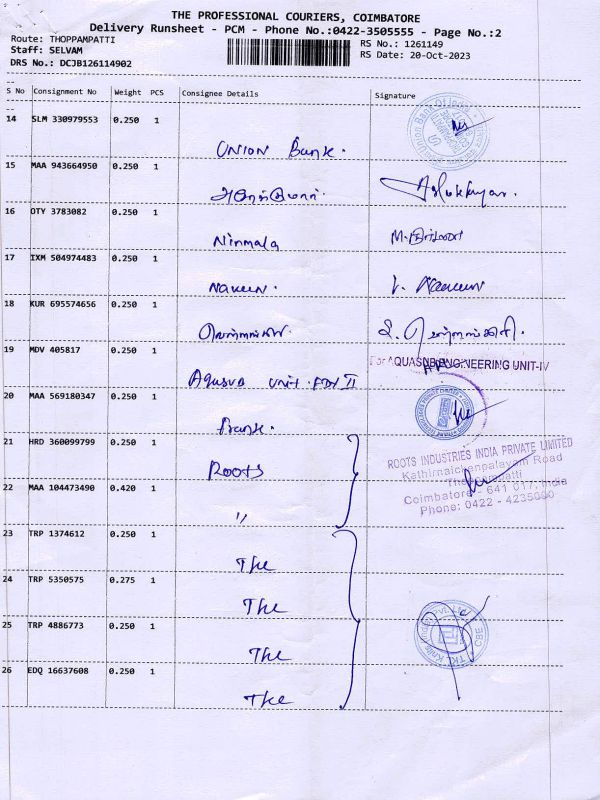 THE PROFESSIONAL COURIERS, COIMBATORE
Delivery Runsheet - PCM - Phone No.:0422-3505555 - Page No.:2
Route: THOPPAMPATTI
Staff: SELVAM
DRS No.: DCJB126114902
RS No.: 1261149
RS Date: 20-Oct-2023
S No Consignment No Weight PCS Consignee Details Signature
14 SLM 330979553 0.250 1
Union Bank.
15 MAA 943664950 0.250 1
16 OTY 3783082 0.250 1
Ninmala M. நிர்மலா
17 IXM 504974483 0.250 1
Naveen.
18 KUR 695574656 0.250 1
19 MDV 405817 0.250 1
For AQUASUB ENGINEERING UNIT-IV
Aqusub Unit II
20 MAA 569180347 0.250 1
21 HRD 360099799 0.250 1
Roots
ROOTS INDUSTRIES INDIA PRIVATE LIMITED
Kathirnaickenpalayam Road
Thoppampatti
Coimbatore - 641 017. India
Phone: 0422 - 4235000
22 MAA 104473490 0.420 1
〃
23 TRP 1374612 0.250 1
The
24 TRP 5350575 0.275 1
The
25 TRP 4886773 0.250 1
The
26 EDQ 16637608 0.250 1
The